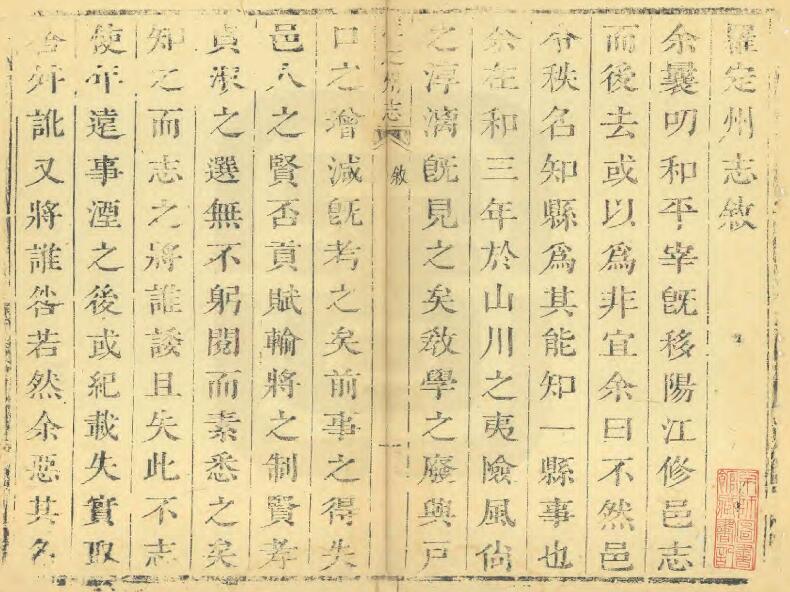 羅定州志敘
余曩叨和平宰既移陽江修邑志
而後去或以為非宜余曰不然邑
令秩名知縣為其能知一縣事也
余在和三年於山川之夷險風尚
之淳漓既見之矣教學之廢興戶
州志
敘
一
口之增減既考之矣前事之得失
邑人之賢否貢賦輸將之制賢孝
貞淑之選無不躬閱而素悉之矣
知之而志之將誰諉且失此不志
使年遠事湮之後或紀載失實取
舛訛又將誰咎若然余惡其名